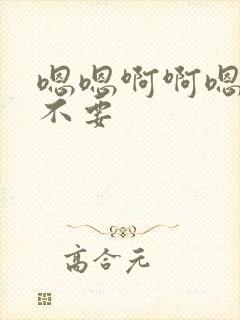 嗯嗯啊啊嗯
不要
高合元